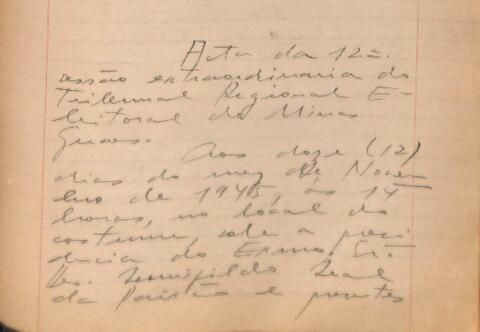 Acta da 12a.
sessão extraordinaria do
Tribunal Regional E-
leitoral de Minas
Geraes.
Aos doze (12)
dias do mez de Novem-
bro de 1945, às 14
horas, no local do
costume, sob a presi
dencia do Exmo. Sr.
Des. Leal
da Paixão e presentes